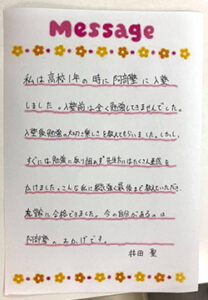 Message
私は高校1年の時に阿部塾に入塾
しました。入塾前は全く勉強してきませんでした。
入塾後勉強の大切さ楽しさを教えてもらいました。しかし、
すぐには勉強に取り組めず先生にはたくさん迷惑を
かけました。こんな私に根気強く最後まで教えていただき、
志望に合格できました。今の自分があるのは
阿部塾のおかげです。
井田 聖